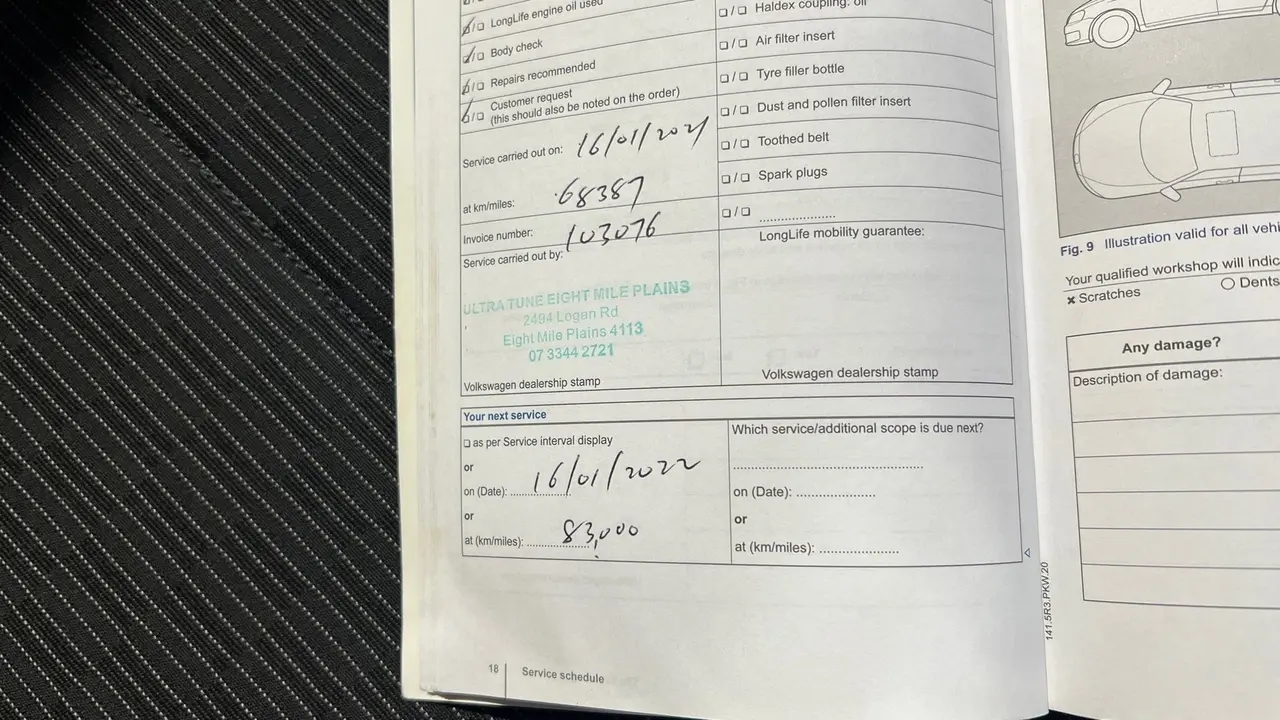 ❏/❏ LongLife engine oil used
❏/❏ Body check
❏/❏ Repairs recommended
❏/❏ Customer request
(this should also be noted on the order)
Service carried out on: 16/01/2021
at km/miles: 68387
Invoice number: 103076
Service carried out by:
ULTRA TUNE EIGHT MILE PLAINS
2494 Logan Rd
Eight Mile Plains 4113
07 3344 2721
Volkswagen dealership stamp
❏/❏ Haldex coupling: oil
❏/❏ Air filter insert
❏/❏ Tyre filler bottle
❏/❏ Dust and pollen filter insert
❏/❏ Toothed belt
❏/❏ Spark plugs
❏/❏ .....................
LongLife mobility guarantee:
Volkswagen dealership stamp
Your next service
❏ as per Service interval display
or
on (Date): 16/01/2022
or
at (km/miles): 83,000
Which service/additional scope is due next?
on (Date): .....................
or
at (km/miles): .....................
18 Service schedule
141.5R3.PKW.20
Fig. 9 Illustration valid for all
Your qualified workshop will
× Scratches ○ Dents
Any damage?
Description of damage: